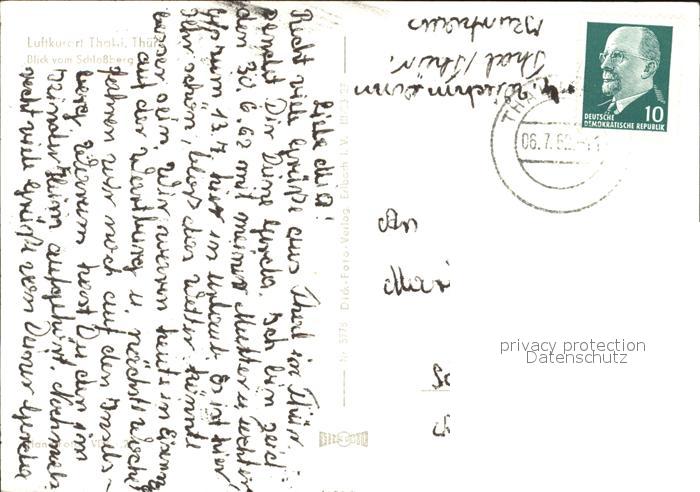 Luftkurort Thal i. Thür.
Blick vom Schloßberg
Liebe Mia!
Recht viele Grüße aus Thal in Thür.
sendet Dir Deine Gerda. Ich bin seit
den 30.6.62 mit meiner Mutter u.
bis zum 13.7 hier in Urlaub. Es ist hier
sehr schön, bloß das Wetter könnte
besser sein. Wir waren heute in
auf der Wartburg u. nächste Woche
fahren wir noch auf den Insels-
berg. Warum hast Du den im
Kinderheim aufgehört. Nochmals
recht viele Grüße von Deiner Gerda
Nr. 5776 Dick-Foto-Verlag Erlbach i. V.
Thal/Thür.
An
DEUTSCHE
DEMOKRATISCHE REPUBLIK
10
06.7.62
privacy protection
Datenschutz